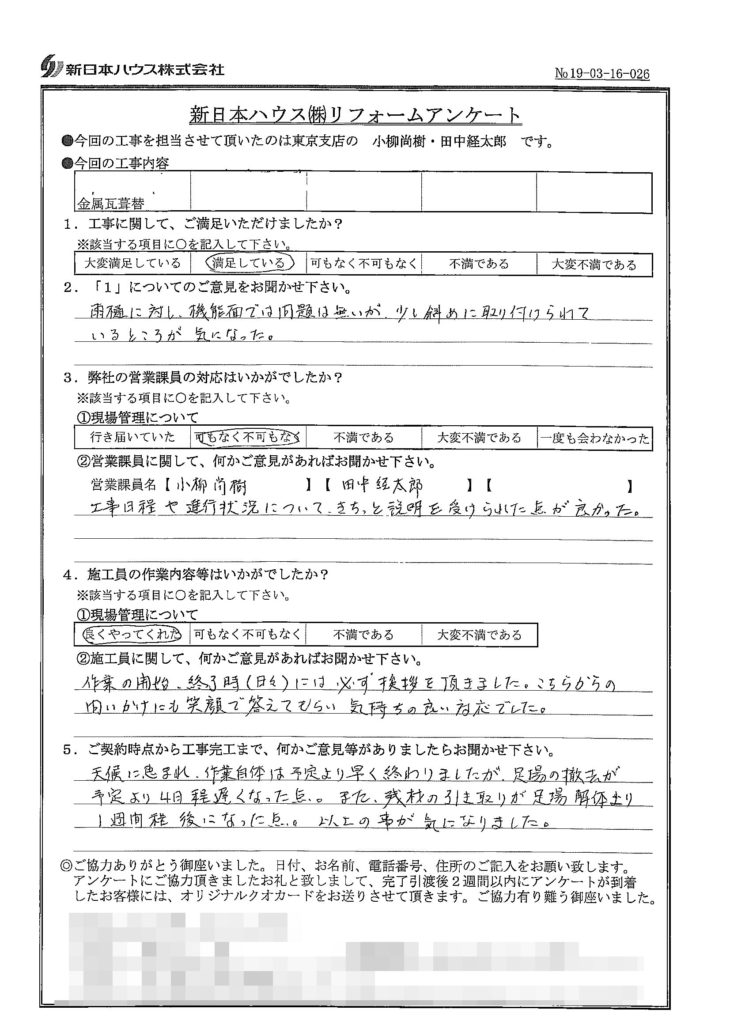 新日本ハウス株式会社
№19-03-16-026
新日本ハウス㈱リフォームアンケート
●今回の工事を担当させて頂いたのは東京支店の 小柳尚樹・田中経太郎 です。
●今回の工事内容
金属瓦葺替
1．工事に関して、ご満足いただけましたか？
※該当する項目に○を記入して下さい。
大変満足している 満足している 可もなく不可もなく 不満である 大変不満である
2．「1」についてのご意見をお聞かせ下さい。
雨樋に対し、機能面では問題は無いが、少し斜めに取り付けられて
いるところが 気になった。
3．弊社の営業課員の対応はいかがでしたか？
※該当する項目に○を記入して下さい。
①現場管理について
行き届いていた 可もなく不可もなく 不満である 大変不満である 一度も会わなかった
②営業課員に関して、何かご意見があればお聞かせ下さい。
営業課員名【 小柳 尚樹 】【 田中 経太郎 】【 】
工事日程や進行状況について、きちっと説明を受けられた点が良かった。
4．施工員の作業内容等はいかがでしたか？
※該当する項目に○を記入して下さい。
①現場管理について
良くやってくれた 可もなく不可もなく 不満である 大変不満である
②施工員に関して、何かご意見があればお聞かせ下さい。
作業の開始、終了時(日々)には必ず挨拶を頂きました。こちらからの
問いかけにも笑顔で答えてもらい 気持ちの良い対応でした。
5．ご契約時点から工事完工まで、何かご意見等がありましたらお聞かせ下さい。
天候に恵まれ、作業自体は予定より早く終わりましたが、足場の撤去が
予定より4日程遅くなった点。また、残材の引き取りが足場解体より
1週間程 後になった点。以上の事が気になりました。
◎ご協力ありがとう御座いました。日付、お名前、電話番号、住所のご記入をお願い致します。
アンケートにご協力頂きましたお礼と致しまして、完了引渡後2週間以内にアンケートが到着
したお客様には、オリジナルクオカードをお送りさせて頂きます。ご協力有り難う御座いました。